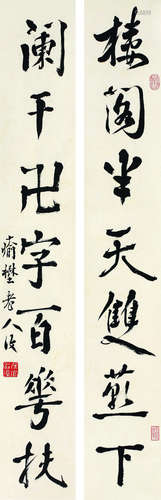 樓閣半天雙燕下
闌干卍字百華扶
老人